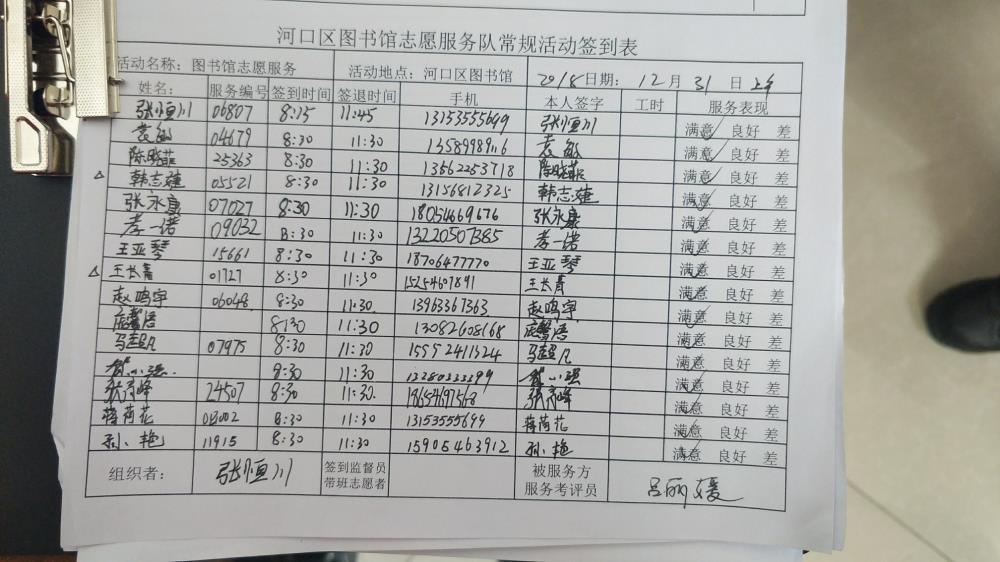 河口区图书馆志愿服务队常规活动签到表
活动名称：图书馆志愿服务 活动地点：河口区图书馆 2018日期：12月31日上午
姓名： 服务编号 签到时间 签退时间 手机 本人签字 工时 服务表现
张恒川 06807 8:15 11:45 13153555699 张恒川 满意 良好 差
袁敏 04679 8:30 11:30 13589989116 袁敏 满意 良好 差
陈晓菲 25363 8:30 11:30 13562253718 陈晓菲 满意 良好 差
韩志婕 05521 8:30 11:30 13156812325 韩志婕 满意 良好 差
张永康 07027 8:30 11:30 18054669676 张永康 满意 良好 差
孝一诺 09032 8:30 11:30 13220507385 孝一诺 满意 良好 差
王亚琴 15661 8:30 11:30 18706477770 王亚琴 满意 良好 差
王长青 01727 8:30 11:30 15254607891 王长青 满意 良好 差
赵鸣宇 06048 8:30 11:30 13963367363 赵鸣宇 满意 良好 差
8:30 11:30 13082608168 满意 良好 差
马超凡 07975 8:30 11:30 15552411324 马超凡 满意 良好 差
小强 8:30 11:30 13280333399 小强 满意 良好 差
张彦峰 24507 8:30 11:30 18654697568 张彦峰 满意 良好 差
蒋荷花 08002 8:30 11:30 13153555699 蒋荷花 满意 良好 差
孙艳 11915 8:30 11:30 15905463912 孙艳 满意 良好 差
组织者： 张恒川 签到监督员 被服务方 吕丽媛
带班志愿者 服务考评员